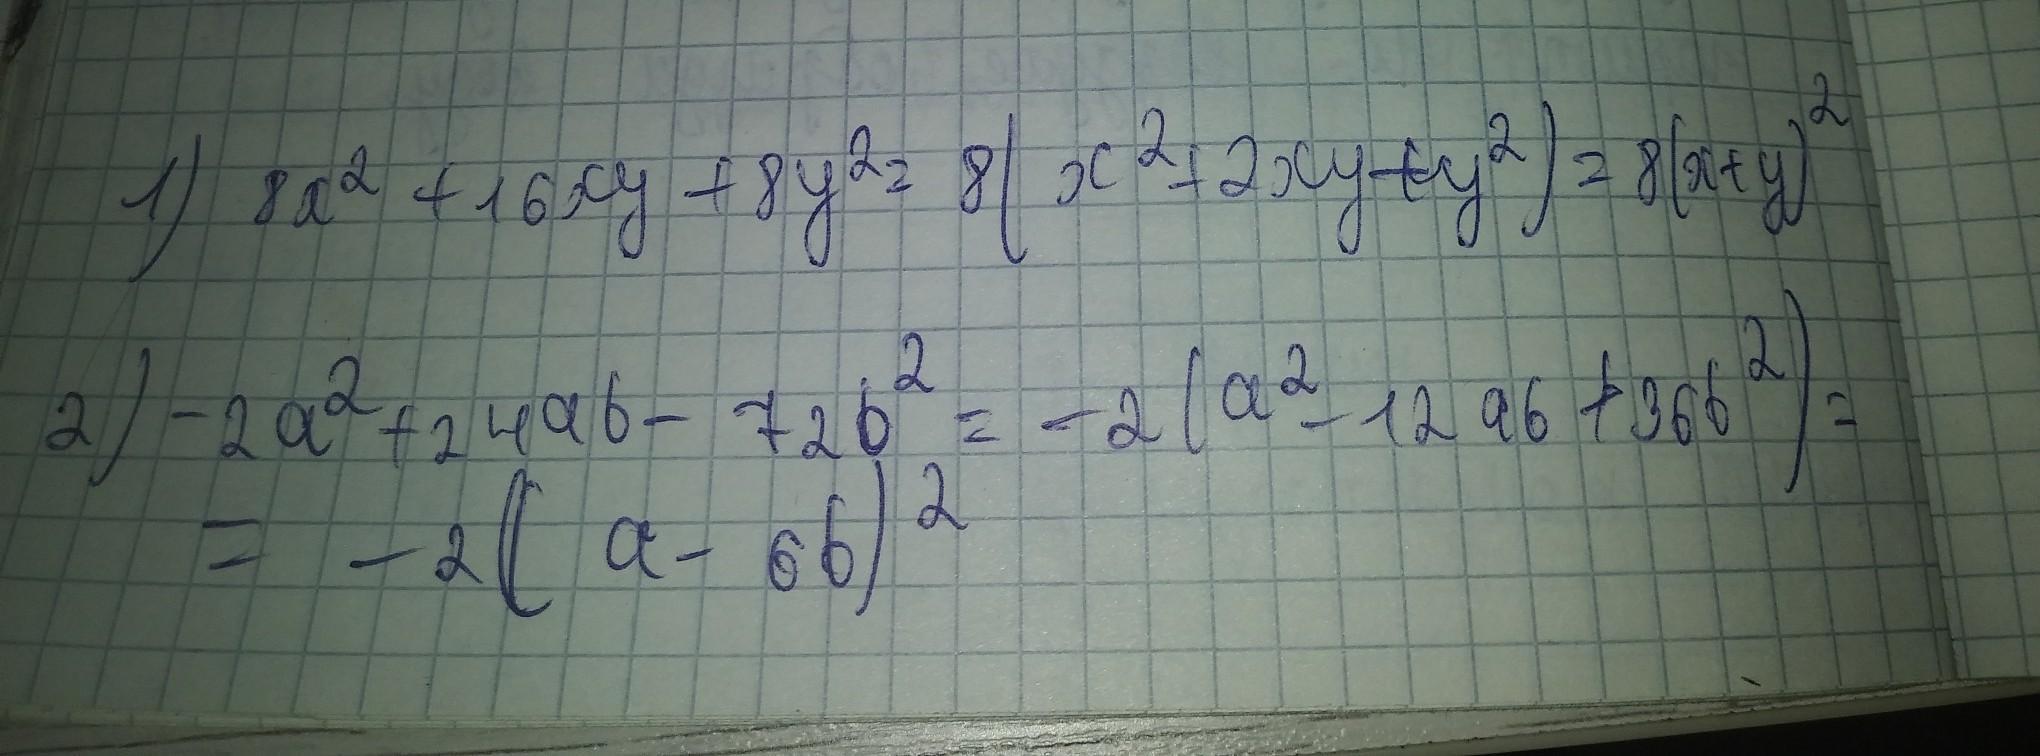 1) 8x² + 16xy + 8y² = 8(x² + 2xy + y²) = 8(x+y)²
2) -2a² + 24ab - 72b² = -2(a² - 12ab + 36b²) =
= -2(a - 6b)²